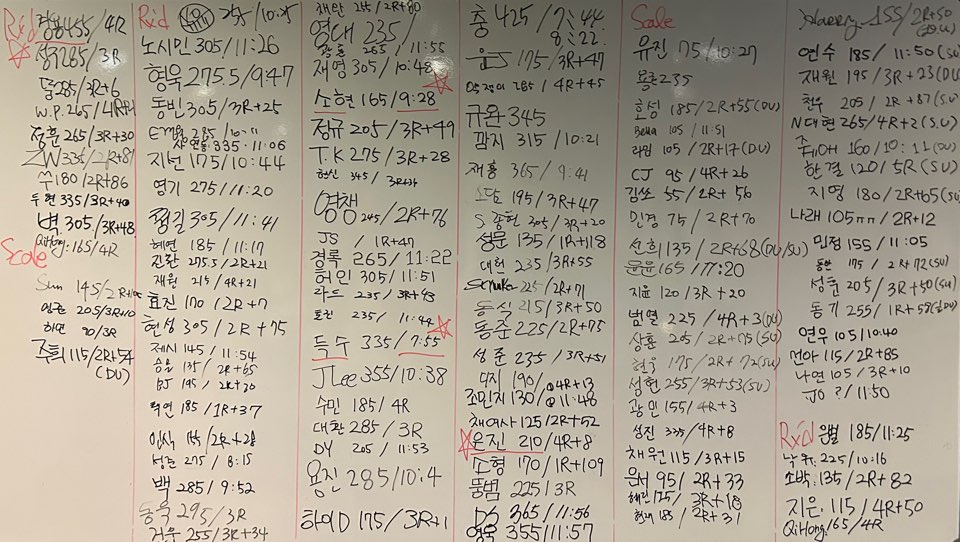 Rx'd
정영455/4R
성구265/3R
덜285/3R+6
W.P.265/4R+1
정훈265/3R+30
ZW335/2R+81
쑤180/2R+86
두현335/3R+40
벽305/3R+48
QiHong:165/4R
Scale
Sun 145/2R+
205/3R+10
하연 90/3R
조희115/2R+54
(DU)
Rx'd
255/10:25
노시민305/11:26
형욱275.5/9:47
동빈305/3R+25
285/10:11
335·11:06
지선175/10:44
영기275/11:20
정길305/11:41
혜연185/11:17
진환275.5/2R+21
재원215/4R+21
효진170/2R+7
현성305/2R+75
제시145/11:54
승을135/2R+65
BJ 195/2R+30
덕연185/1R+37
임식 /2R+28
성준275/8:15
백285/9:52
동욱295/3R
거운255/3R+34
채란 215/2R+80
영대235/
265/11:55
재영305/10:48
소현165/9:28
정규205/3R+49
T.K 275/3R+28
현신345/3R+
영채245/2R+76
JS /1R+47
경록265/11:22
허인305/11:51
라드235/3R+48
효진235/11:44
득수335/7:55
JLee355/10:38
수민185/4R
대환285/3R
DY 205/11:53
용진285/10:4
하이D 175/3R+1
충425/7:44
8:22
윤J 175/3R+47
285/4R+45
규완345
깜지315/10:21
재홍365/9:41
소담195/3R+47
S종현305/3R+20
성문135/1R+118
대현235/3R+55
225/2R+71
동식215/3R+50
동준225/2R+75
성준235/3R+51
다지190/4R+13
조민지130/11:48
채여사125/2R+52
윤진210/4R+8
소형170/1R+109
뚱범225/3R
DS 365/11:56
영욱355/11:57
Scale
유진175/10:27
용준235
효성185/2R+55(DU)
Bella 105/11:51
라임105/2R+17(DU)
CJ 95/4R+26
김쏘55/2R+56
민경75/2R+70
선희135/2R+68(DU/SU)
문윤165/11:20
지윤120/3R+20
범열225/4R+3(DU)
상훈205/2R+75(SU)
현우175/2R+72(SU)
성현255/3R+53(SU)
광민155/4R+3
성진335/4R+8
채원115/3R+15
윤서95/2R+33
혜진125/3R+18
현재185/2R+31
Harry 155/2R+50
연수185/11:50(SU)
재원195/3R+23(DU)
철우205/2R+87(S.U)
N대현265/4R+2(S.U)
160/10:11(DU)
한결120/5R(SU)
지영180/2R+65(SU)
나래105/2R+12
민정155/11:05
동환175/2R+72(SU)
성준205/3R+50(SU)
동기255/1R+59
연우105/10:40
선아115/2R+85
나연105/3R+10
JO ?/11:50
Rx'd
은별185/11:25
낙워:225/10:16
소박:135/2R+82
지은:115/4R+50
QiHong:165/4R